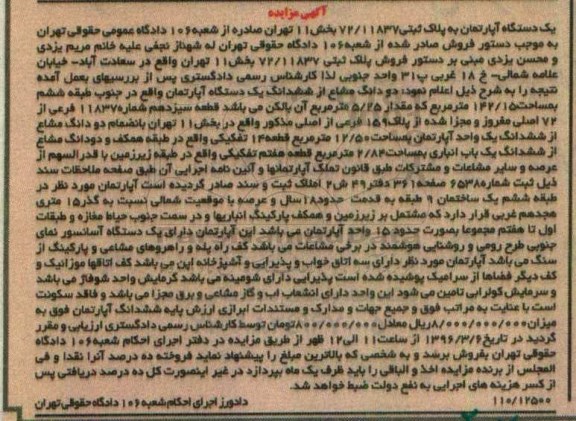 آگهی مزایده
یک دستگاه آپارتمان به پلاک ثبتی ۷۲/۱۱۸۳۷ بخش ۱۱ تهران صادره از شعبه ۱۰۶ دادگاه عمومی حقوقی تهران
به موجب دستور فروش صادر شده از شعبه ۱۰۶ دادگاه حقوقی تهران له شهناز نجفی علیه خانم مریم یزدی
و محسن یزدی مبنی بر دستور فروش پلاک ثبتی ۷۲/۱۱۸۳۷ بخش ۱۱ تهران واقع در سعادت آباد– خیابان
علامه شمالی– خ ۱۸ غربی پ ۳۱ واحد جنوبی لذا کارشناس رسمی دادگستری پس از بررسیهای بعمل آمده
نتیجه را به شرح ذیل اعلام نمود: دو دانگ مشاع از ششدانگ یک دستگاه آپارتمان واقع در جنوب طبقه ششم
بمساحت ۱۴۲/۱۵ مترمربع که مقدار ۵/۲۵ مترمربع آن بالکن می باشد قطعه سیزدهم شماره ۱۱۸۳۷ فرعی از
۷۲ اصلی مفروز و مجزا شده از پلاک ۱۵۹ فرعی از اصلی مذکور واقع در بخش ۱۱ تهران بانضمام دو دانگ مشاع
از ششدانگ یک واحد آپارتمان بمساحت ۱۲/۵۰ مترمربع قطعه ۱۴ تفکیکی واقع در طبقه همکف و دودانگ مشاع
از ششدانگ یک باب انباری بمساحت ۲/۸۴ مترمربع قطعه هفتم تفکیکی واقع در طبقه زیرزمین با قدرالسهم از
عرصه و سایر مشاعات و مشترکات طبق قانون تملک آپارتمانها و آئین نامه اجرایی آن طبق صفحه ملاحظات سند
ذیل ثبت شماره ۶۵۳۸ صفحه ۳۶۱ دفتر ۴۹ ش ۲ املاک ثبت و سند صادر گردیده است آپارتمان مورد نظر در
طبقه ششم یک ساختمان ۹ طبقه به قدمت حدود ۱۸ سال و عرصه با موقعیت شمالی نسبت به گذر ۱۵ متری
هجدهم غربی قرار دارد که مشتمل بر زیرزمین و همکف پارکینگ انباریها و در سمت جنوب حیاط مغازه و طبقات
اول تا هفتم مجموعا بصورت حدود ۱۵ واحد آپارتمان می باشد این آپارتمان دارای یک دستگاه آسانسور نمای
جنوبی طرح رومی و روشنایی هوشمند در برخی مشاعات می باشد کف راه پله و راهروهای مشاعی و پارکینگ از
سنگ می باشد آپارتمان مورد نظر دارای سه اتاق خواب و پذیرایی و آشپزخانه اپن می باشد کف اتاقها موزائیک و
کف دیگر فضاها از سرامیک پوشیده شده است پذیرایی دارای شومینه می باشد گرمایش واحد شوفاژ می باشد
و سرمایش کولرآبی تامین می شود این واحد دارای انشعاب آب و گاز مشاعی و برق مجزا می باشد و فاقد سکونت
است با عنایت به مراتب فوق و جمیع جهات و مدارک و مستندات ابرازی ارزش پایه ششدانگ آپارتمان فوق به
میزان ۸/۰۰۰/۰۰۰/۰۰۰ ریال معادل ۸۰۰/۰۰۰/۰۰۰ تومان توسط کارشناس رسمی دادگستری ارزیابی و مقرر
گردید در تاریخ ۱۳۹۶/۳/۶ از ساعت ۱۱ الی ۱۲ ظهر از طریق مزایده در دفتر اجرای احکام شعبه ۱۰۶ دادگاه
حقوقی تهران بفروش برسد و به شخصی که بالاترین مبلغ را پیشنهاد نماید فروخته ده درصد آنرا نقدا و فی
المجلس از برنده مزایده اخذ و الباقی را باید ظرف یک ماه بپردازد در غیر اینصورت کل ده درصد دریافتی پس
از کسر هزینه های اجرایی به نفع دولت ضبط خواهد شد.
۱۱۰/۱۲۵۰۰ دادورز اجرای احکام شعبه ۱۰۶ دادگاه حقوقی تهران